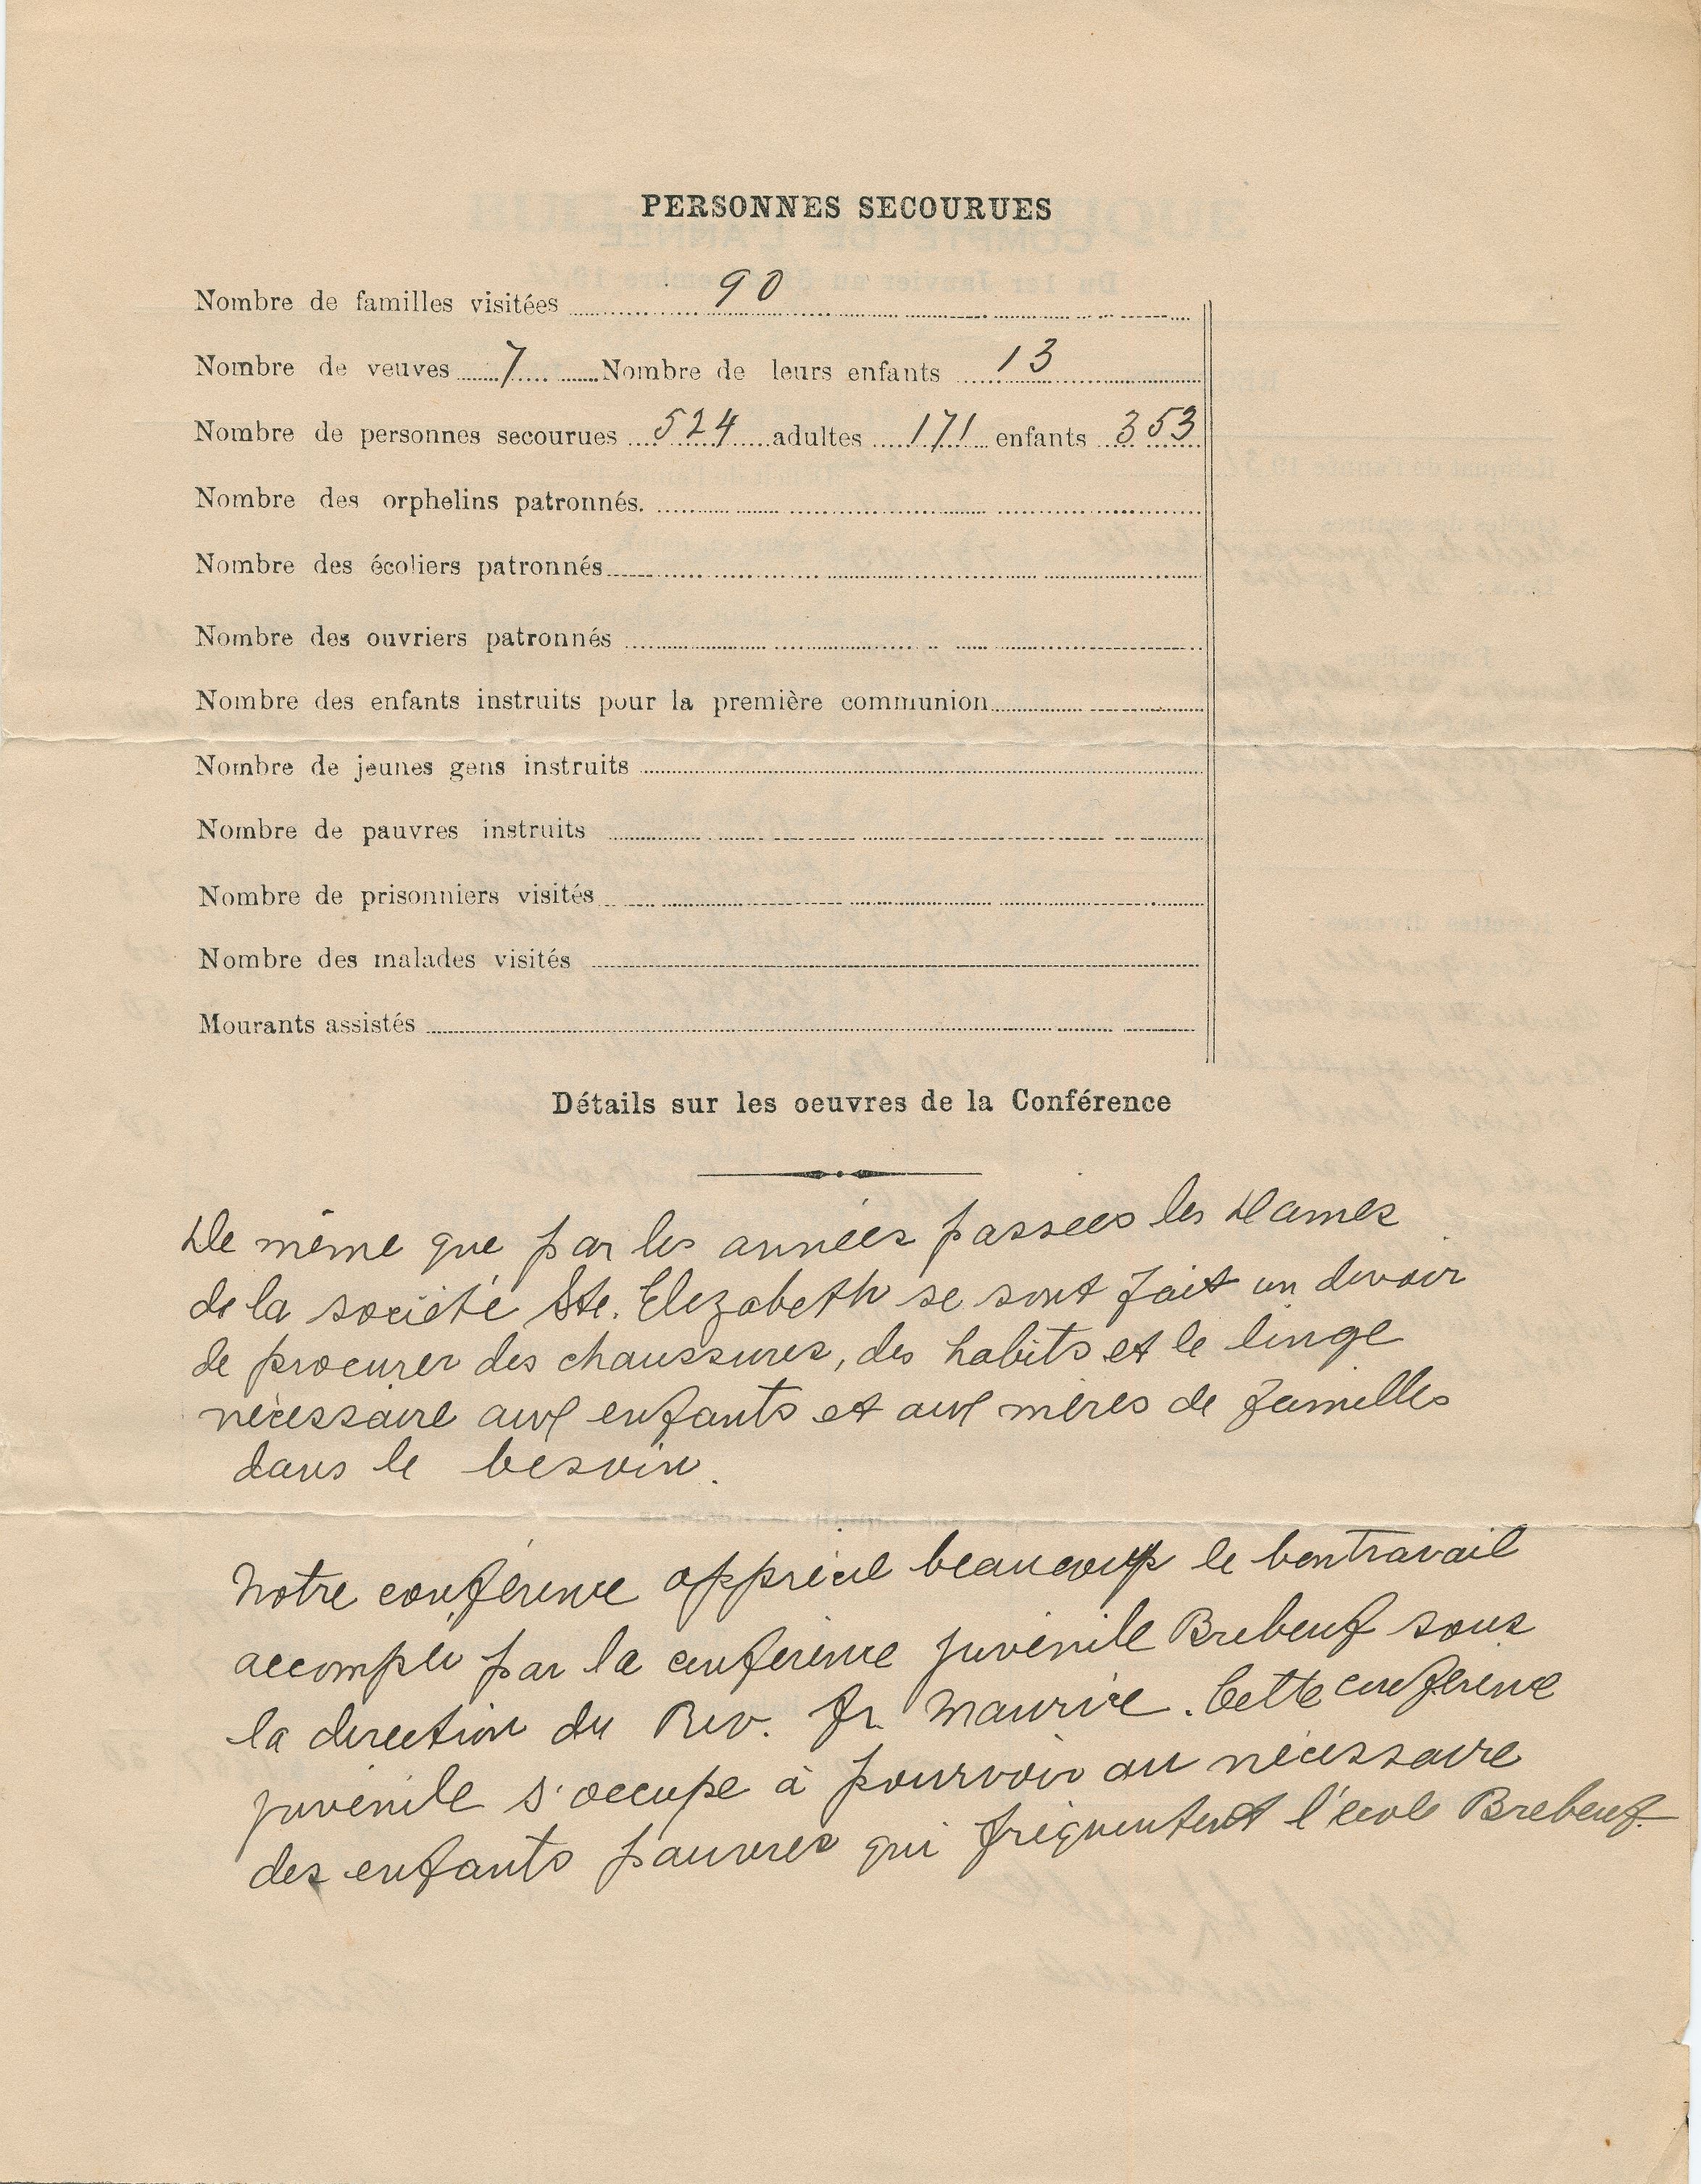 PERSONNES SECOURUES
Nombre de familles visitées 90
Nombre de veuves 7 Nombre de leurs enfants 13
Nombre de personnes secourues 524 adultes 171 enfants 353
Nombre des orphelins patronnés.
Nombre des écoliers patronnés
Nombre des ouvriers patronnés
Nombre des enfants instruits pour la première communion
Nombre de jeunes gens instruits
Nombre de pauvres instruits
Nombre de prisonniers visités
Nombre des malades visités
Mourants assistés
Détails sur les oeuvres de la Conférence
De même que par les années passées les Dames
de la société Ste. Elezabeth se sont fait un devoir
de procurer des chaussures, des habits et le linge
nécessaire aux enfants et aux mères de familles
dans le besoin.
Notre conférence apprécie beaucoup le bon travail
accompli par la conférence juvénile Brebeuf sous
la direction du Rev. fr. Maurice. Cette conférence
juvénile s'occupe à pourvoir au nécessaire
des enfants pauvres qui fréquentent l'école Brebeuf.